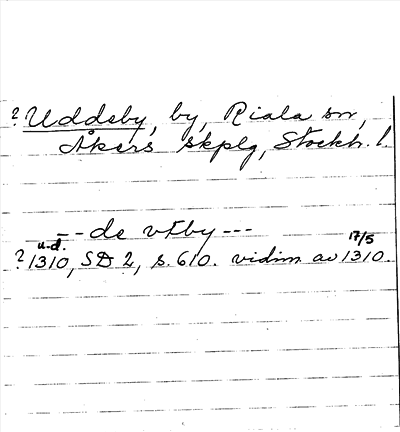 ? Uddeby, by, Riala sn,
Åkers skplg, Stockh. l.
-- de vtby ---
u.d. 17/5
? 1310, SD 2, s. 610. vidim av 1310.